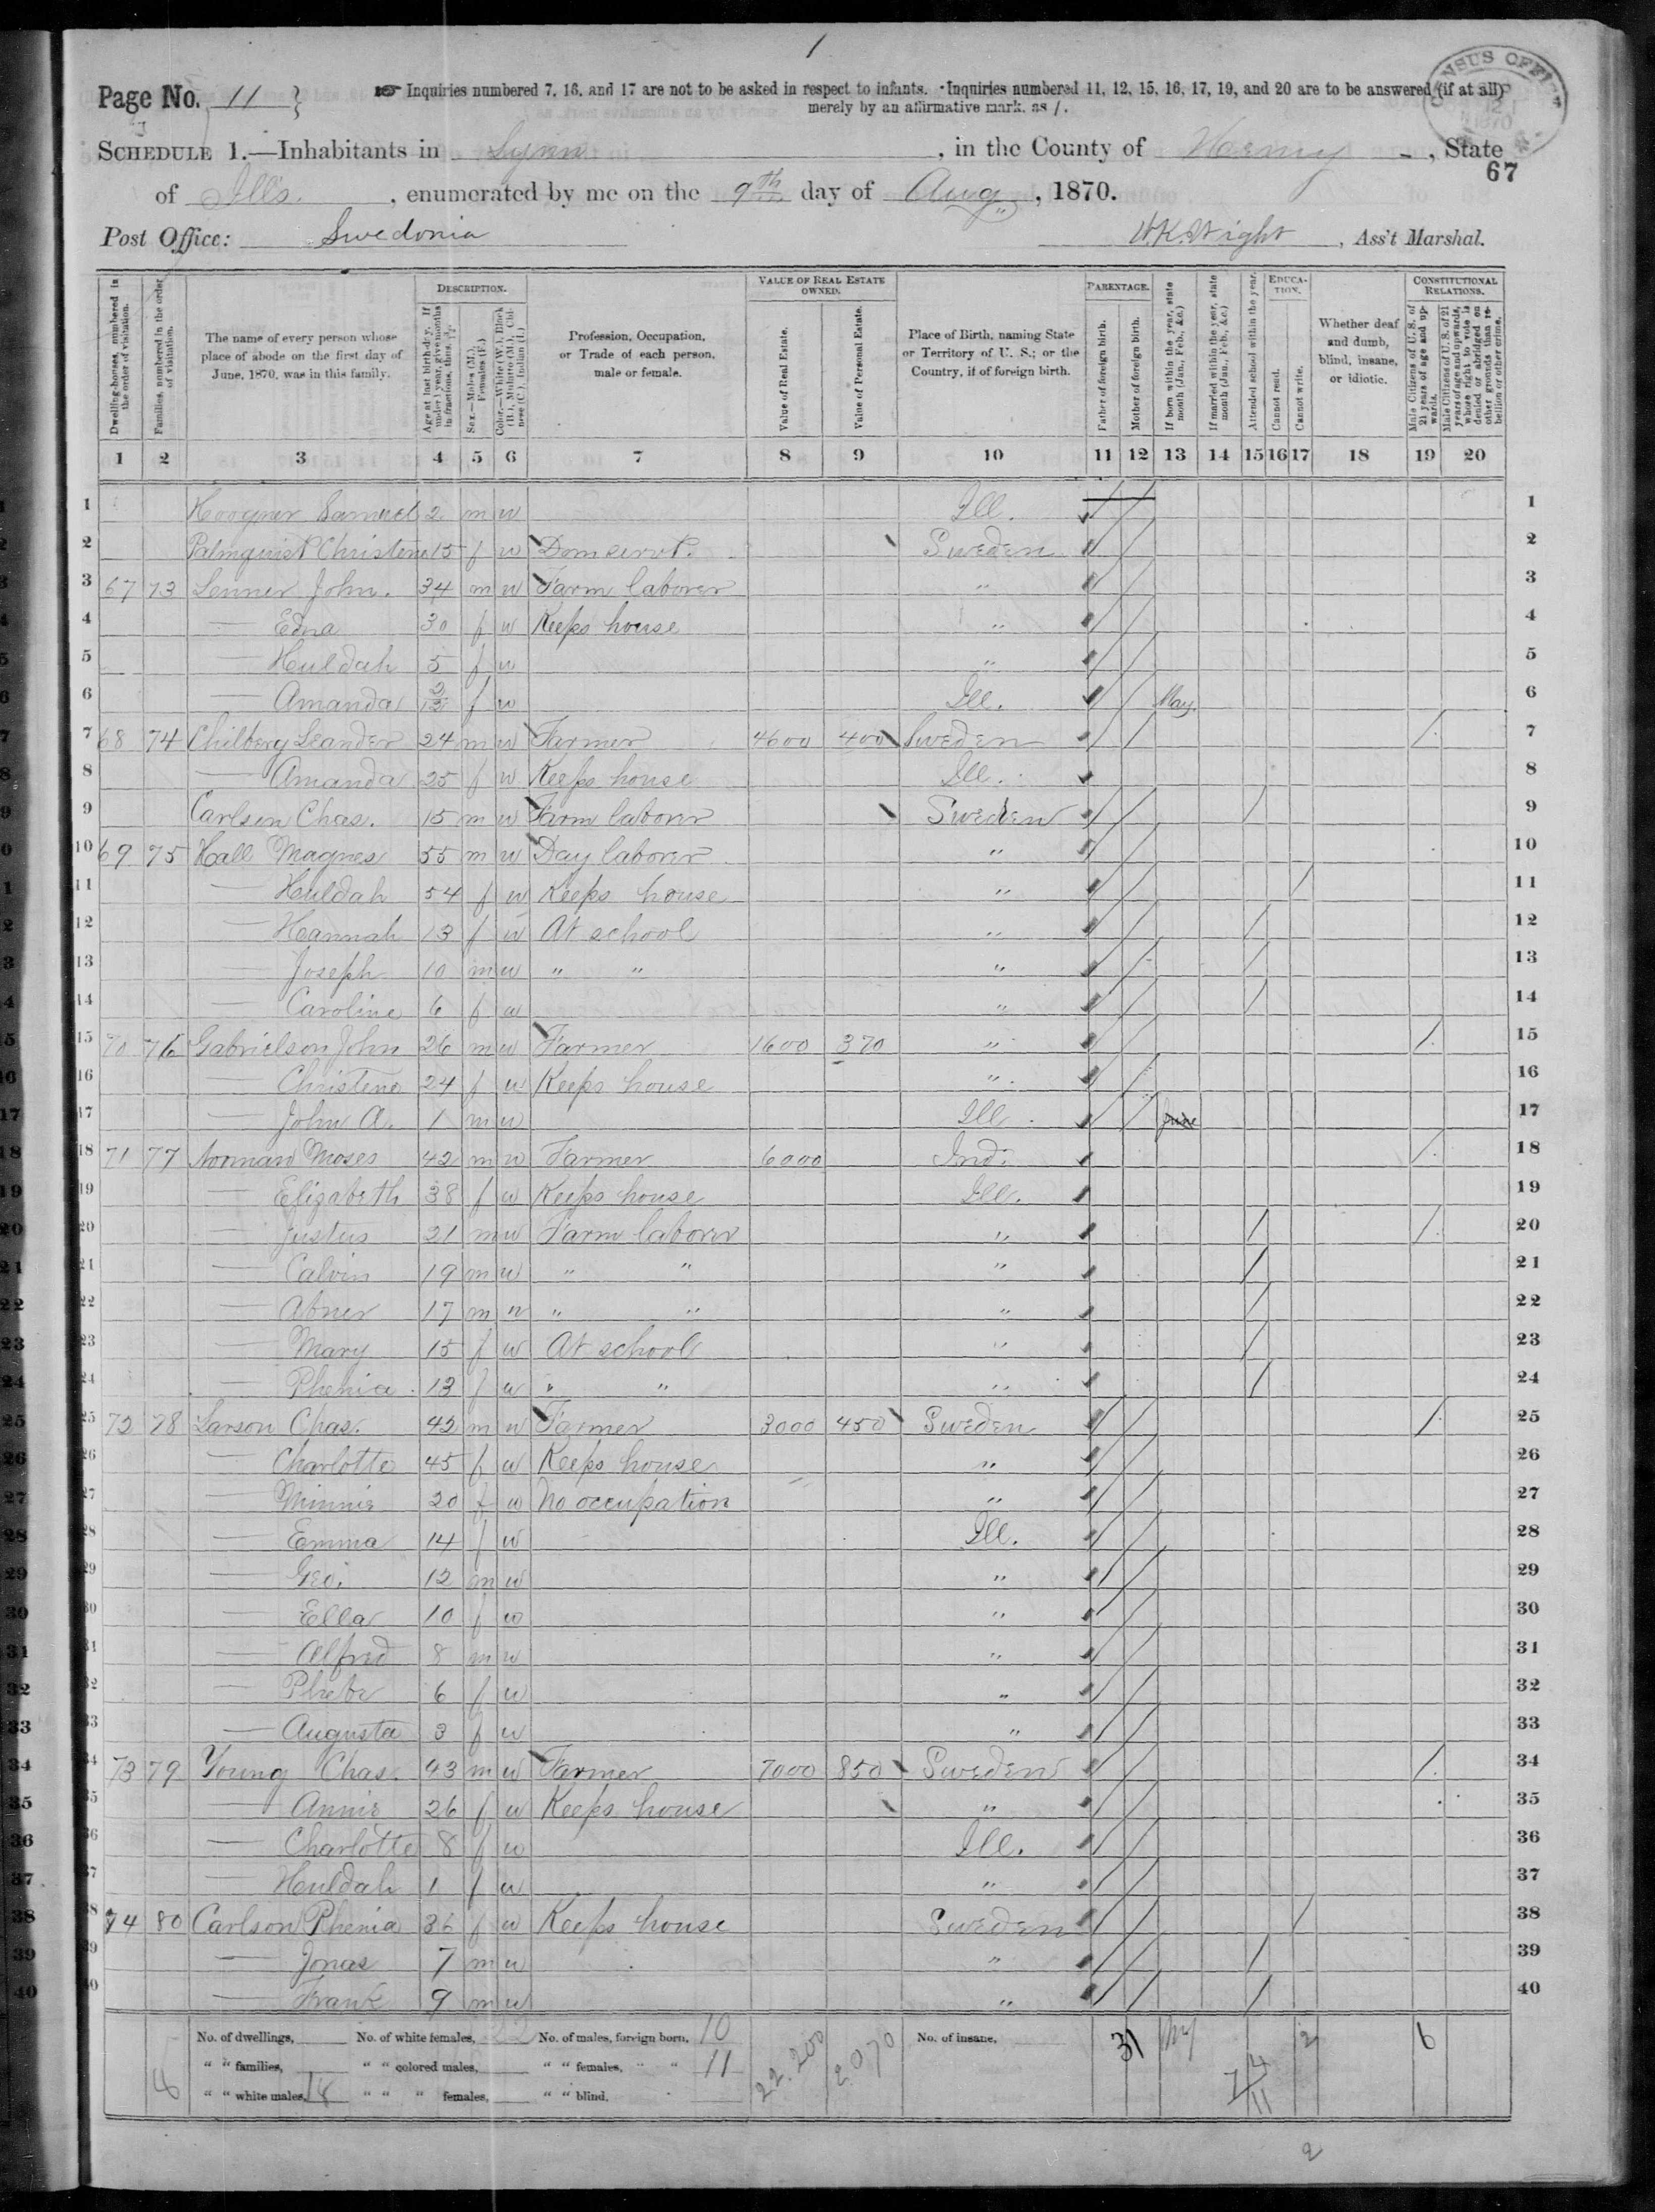 1
Page No. 11 } ☞ Inquiries numbered 7, 16, and 17 are not to be asked in respect to infants. Inquiries numbered 11, 12, 15, 16, 17, 19, and 20 are to be answered (if at all)
merely by an affirmative mark, as /.
CENSUS OFFICE 1870
SCHEDULE 1.—Inhabitants in Lynn, in the County of Henry, State
67
of Ills., enumerated by me on the 9th day of Aug, 1870.
Post Office: Swedonia W.K. Wright, Ass't Marshal.
Dwelling-houses, numbered in the order of visitation.
Families, numbered in the order of visitation.
The name of every person whose place of abode on the first day of June, 1870, was in this family.
DESCRIPTION.
Age at last birth-day. If under 1 year, give months in fractions, thus, 3/12.
Sex.—Males (M.), Females (F.)
Color.—White (W.), Black (B.), Mulatto (M.), Chinese (C.), Indian (I.)
Profession, Occupation, or Trade of each person, male or female.
VALUE OF REAL ESTATE OWNED.
Value of Real Estate.
Value of Personal Estate.
Place of Birth, naming State or Territory of U. S.; or the Country, if of foreign birth.
PARENTAGE.
Father of foreign birth.
Mother of foreign birth.
If born within the year, state month (Jan., Feb., &c.)
If married within the year, state month (Jan., Feb., &c.)
Attended school within the year.
EDUCATION.
Cannot read.
Cannot write.
Whether deaf and dumb, blind, insane, or idiotic.
CONSTITUTIONAL RELATIONS.
Male Citizens of U. S. of 21 years of age and upwards.
Male Citizens of U. S. of 21 years of age and upwards, whose right to vote is denied or abridged on other grounds than rebellion or other crime.
1 2 3 4 5 6 7 8 9 10 11 12 13 14 15 16 17 18 19 20
1 Samuel 2 m w Ill. / / 1
2 Palmquist Christene 15 f w Dom servt. Sweden / / 2
3 67 73 Lenner John. 34 m w Farm laborer " / / 3
4 — Edna 30 f w Keeps house " / / 4
5 — Huldah 5 f w " / / 5
6 — Amanda 2/12 f w Ill. / / May 6
7 68 74 Chilberg Leander 24 m w Farmer 4600 400 Sweden / / / 7
8 — Amanda 25 f w Keeps house Ill. 8
9 Carlson Chas. 15 m w Farm laborer Sweden / / / 9
10 69 75 Hall Magnes 55 m w Day laborer " / / 10
11 — Huldah 54 f w Keeps house " / / / 11
12 — Hannah 13 f w At school " / / / 12
13 — Joseph 10 m w " " " / / / 13
14 — Caroline 6 f w " / / / 14
15 70 76 Gabrielson John 26 m w Farmer 1600 370 " / / / 15
16 — Christene 24 f w Keeps house " / / 16
17 — John A. 1 m w Ill / / June 17
18 71 77 Norman Moses 42 m w Farmer 6000 Ind. / 18
19 — Elizabeth 38 f w Keeps house Ill. 19
20 — Justus 21 m w Farm laborer " / / 20
21 — Calvin 19 m w " " " / 21
22 — Abner 17 m w " " " / 22
23 — Mary 15 f w At school " / 23
24 — Phenia 13 f w " " " / 24
25 72 78 Larson Chas. 42 m w Farmer 3000 450 Sweden / / / 25
26 — Charlotte 45 f w Keeps house " / / 26
27 — Minnie 20 f w No occupation " / / 27
28 — Emma 14 f w Ill. / / 28
29 — Geo. 12 m w " / / 29
30 — Ella 10 f w " / / 30
31 — Alfred 8 m w " / / 31
32 — Phebe 6 f w " / / 32
33 — Augusta 3 f w " / / 33
34 73 79 Young Chas. 43 m w Farmer 7000 850 Sweden / / / 34
35 — Annie 26 f w Keeps house " / / 35
36 — Charlotte 8 f w Ill. / / 36
37 — Huldah 1 f w " / / 37
38 74 80 Carlson Phenia 36 f w Keeps house Sweden / / / 38
39 — Jonas 7 m w " / / / 39
40 — Frank 9 m w " / / / 40
No. of dwellings, No. of white females, 22 No. of males, foreign born, 10 22.200 2.070 No. of insane, 31 2 6
8 " " families, " " colored males, " " females, " " 11 7/4 11
" " white males, 18 " " " females, " " blind,
2